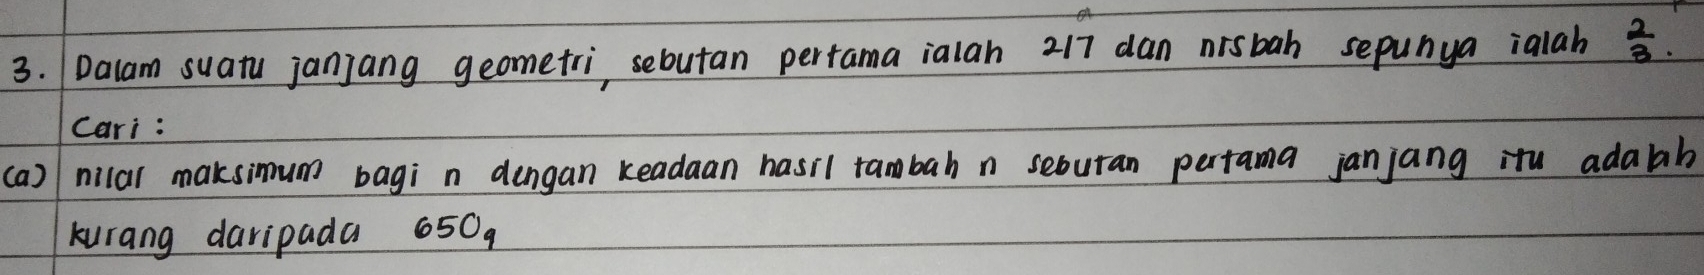 a
3. Dalam suatu janjang geometri, sebutan pertama ialah 217 dan nisbah sepunya ialah 2/3.
Cari :
(a) nilai maksimum bagi n dengan keadaan hasil tambah n sebutan pertama janjang itu adalah
kurang daripada 650,